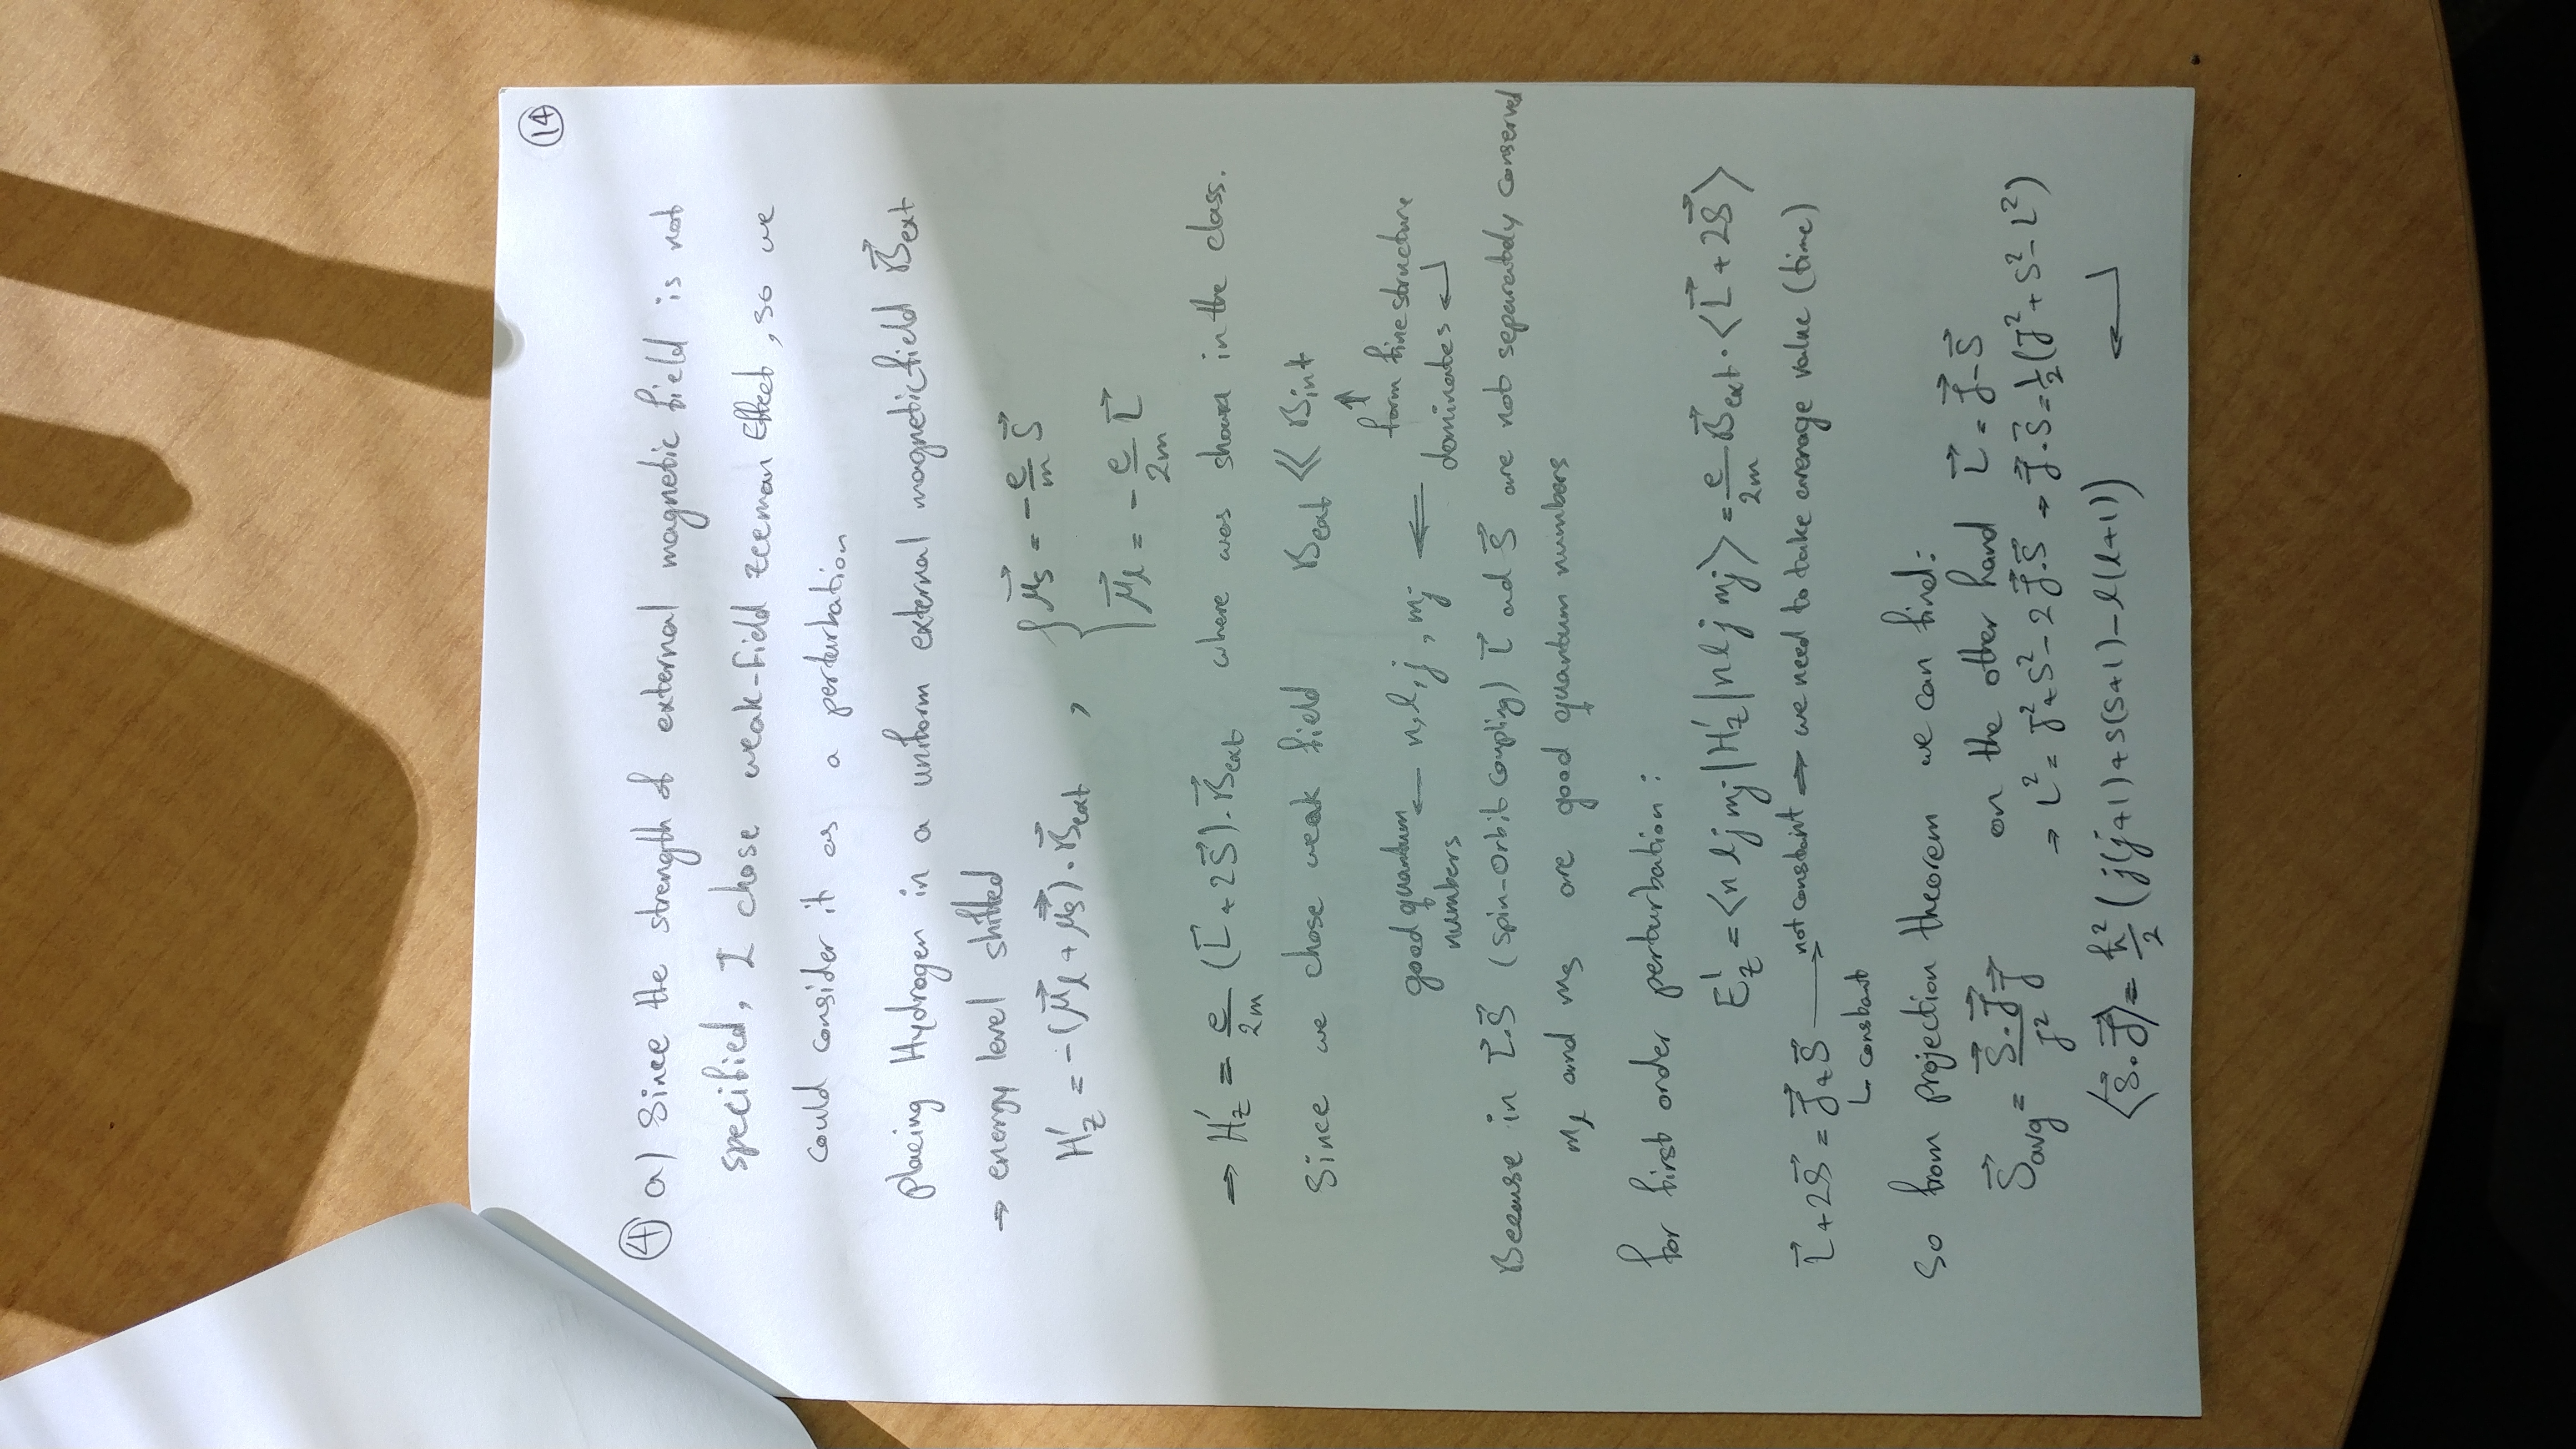 14
④ a) Since the strength of external magnetic field is not
specified, I chose weak-field zeeman Effect, so we
could consider it as a perturbation
placing Hydrogen in a uniform external magnetic field B⃗ext
→ energy level shifted
H'z = -(μ⃗l + μ⃗s) . B⃗ext , { μ⃗s = -e/m S⃗
μ⃗l = -e/2m L⃗
⇒ H'z = e/2m (L⃗ + 2S⃗) . B⃗ext where was shown in the class.
Since we chose weak field Bext ≪ Bint
↑
form fine structure
good quantum numbers ← n, l, j, mj ⇐ dominates ↵
Because in L⃗.S⃗ (spin-Orbit Coupling) L⃗ ad S⃗ are not separately conserved
ml and ms are good quantum numbers
for first order perturbation :
E¹z = <n l j mj | H'z | n l j mj> = e/2m B⃗ext . <L⃗ + 2S⃗>
L⃗ + 2S⃗ = J⃗ + S⃗ → not constant ⇒ we need to take average value (time)
↳ constant
so from projection theorem we can find:
S⃗avg = S⃗.J⃗/J² J⃗ on the other hand L⃗ = J⃗ - S⃗
⇒ L² = J² + S² - 2 J⃗.S⃗ ⇒ J⃗.S⃗ = 1/2 (J² + S² - L²)
<S⃗.J⃗> = ħ²/2 (j(j+1) + s(s+1) - l(l+1)) ↵